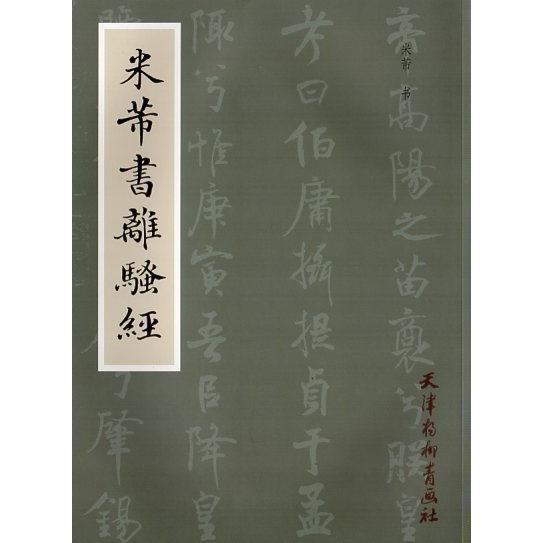 米芾書離騷經
米芾 书
帝高陽之苗裔兮朕皇
考曰伯庸攝提貞于孟
陬兮惟庚寅吾臣降皇
兮肇錫
天津杨柳青画社